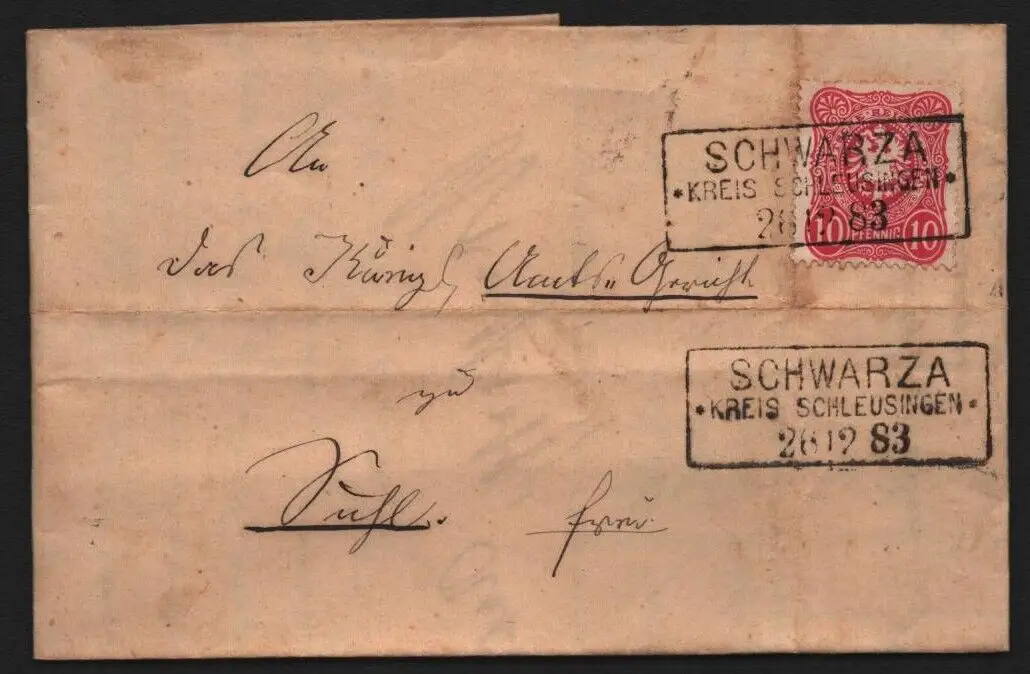 An
SCHWARZA
*KREIS SCHLEUSINGEN*
26 12 83
10 PFENNIG 10
das Königl. Amts-Gericht
SCHWARZA
*KREIS SCHLEUSINGEN*
26 12 83
zu
Suhl. frei